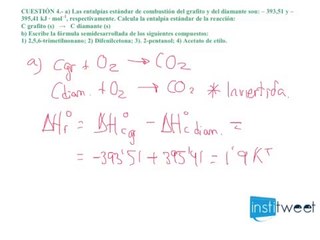 CUESTIÓN 4.- a) Las entalpías estándar de combustión del grafito y del diamante son: – 393,51 y –
395,41 kJ · mol⁻¹, respectivamente. Calcula la entalpía estándar de la reacción:
C grafito (s) → C diamante (s)
b) Escribe la fórmula semidesarrollada de los siguientes compuestos:
1) 2,5,6-trimetilnonano; 2) Difenilcetona; 3) 2-pentanal; 4) Acetato de etilo.
a) Cgr + O2 → CO2
Cdiam. + O2 → CO2 * Invertida.
ΔHr° = ΔHcg° - ΔHc diam.° =
= -393'51 + 395'41 = 1'9 KJ
institweet